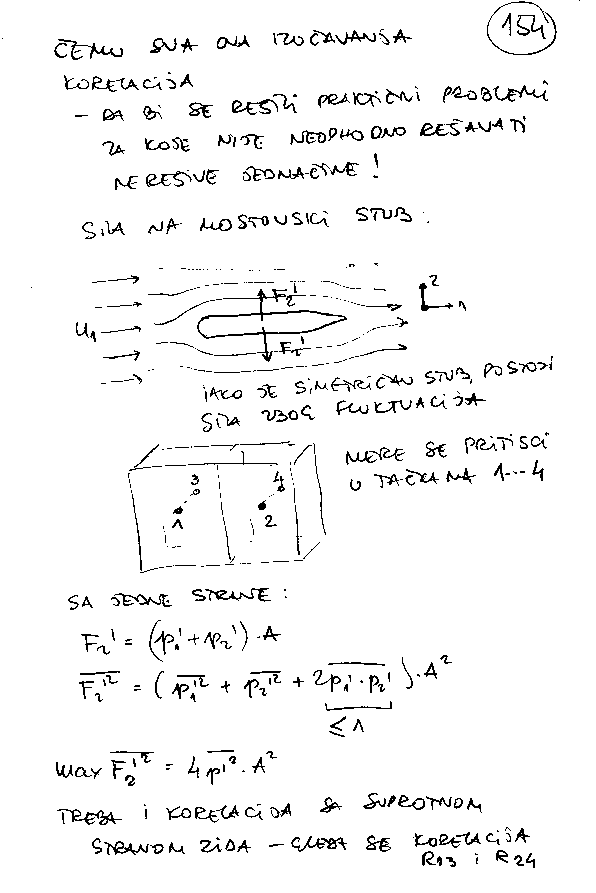 154
ČEMU SVA OVA IZUČAVANJA
KORELACIJA
- DA BI SE REŠILI PRAKTIČNI PROBLEMI
ZA KOJE NIJE NEOPHODNO REŠAVATI
NEREŠIVE JEDNAČINE!
SILA NA MOSTOVSKI STUB.
F₂'
2
U₁
1
F₂'
IAKO JE SIMETRIČAN STUB, POSTOJI
SILA ZBOG FLUKTUACIJA
MERE SE PRITISCI
U TAČKAMA 1---4
3 4
1 2
SA JEDNE STRANE:
F₂' = (p₁' + p₂')·A
\overline{F₂'²} = ( \overline{p₁'²} + \overline{p₂'²} + 2\overline{p₁'·p₂'} )·A²
≤ 1
max \overline{F₂'²} = 4 \overline{p'²}·A²
TREBA I KORELACIJA SA SUPROTNOM
STRANOM ZIDA - GLEDA SE KORELACIJA
R13 i R24